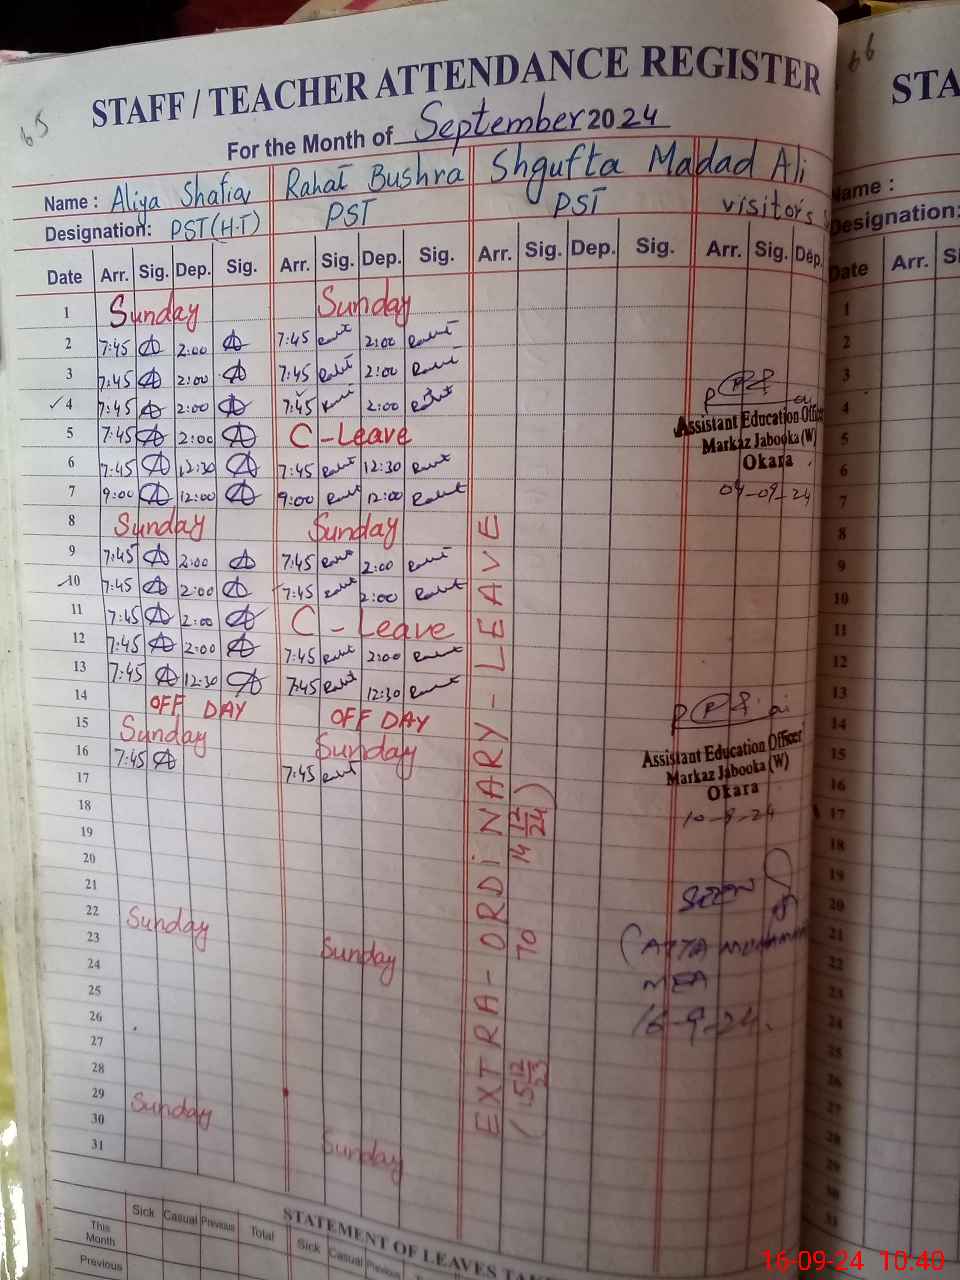 65
66
STAFF / TEACHER ATTENDANCE REGISTER
STA
For the Month of September 2024
Name : Aliya Shafiq Rahat Bushra Shgufta Madad Ali
Name :
Designation: PST(H.T) PST PST visitor's
Designation:
Date Arr. Sig. Dep. Sig. Arr. Sig. Dep. Sig. Arr. Sig. Dep. Sig. Arr. Sig. Dep.
Date Arr. Si
1 Sunday Sunday
2 7:45 2:00 7:45 2:00
3 7:45 2:00 7:45 2:00
4 7:45 2:00 7:45 2:00
5 7:45 2:00 C-Leave
6 7:45 12:30 7:45 12:30
7 9:00 12:00 9:00 12:00
8 Sunday Sunday
9 7:45 2:00 7:45 2:00
10 7:45 2:00 7:45 2:00
11 7:45 2:00 C-Leave
12 7:45 2:00 7:45 2:00
13 7:45 12:30 7:45 12:30
14 OFF DAY OFF DAY
15 Sunday Sunday
16 7:45 7:45
17
18
19
20
21
22 Sunday Sunday
23
24
25
26
27
28
29 Sunday Sunday
30
31
EXTRA-ORDINARY-LEAVE
(15 12/23 TO 14 12/24)
Assistant Education Officer
Markaz Jabooka (W)
Okara
04-09-24
Assistant Education Officer
Markaz Jabooka (W)
Okara
10-9-24
Seen
(ATTA
MEA
16-9-24.
1
2
3
4
5
6
7
8
9
10
11
12
13
14
15
16
17
18
19
20
21
22
23
24
25
26
27
28
29
30
31
STATEMENT OF LEAVES TA
Sick Casual Previous Total Sick Casual Previous
This Month
Previous
16-09-24 10:40